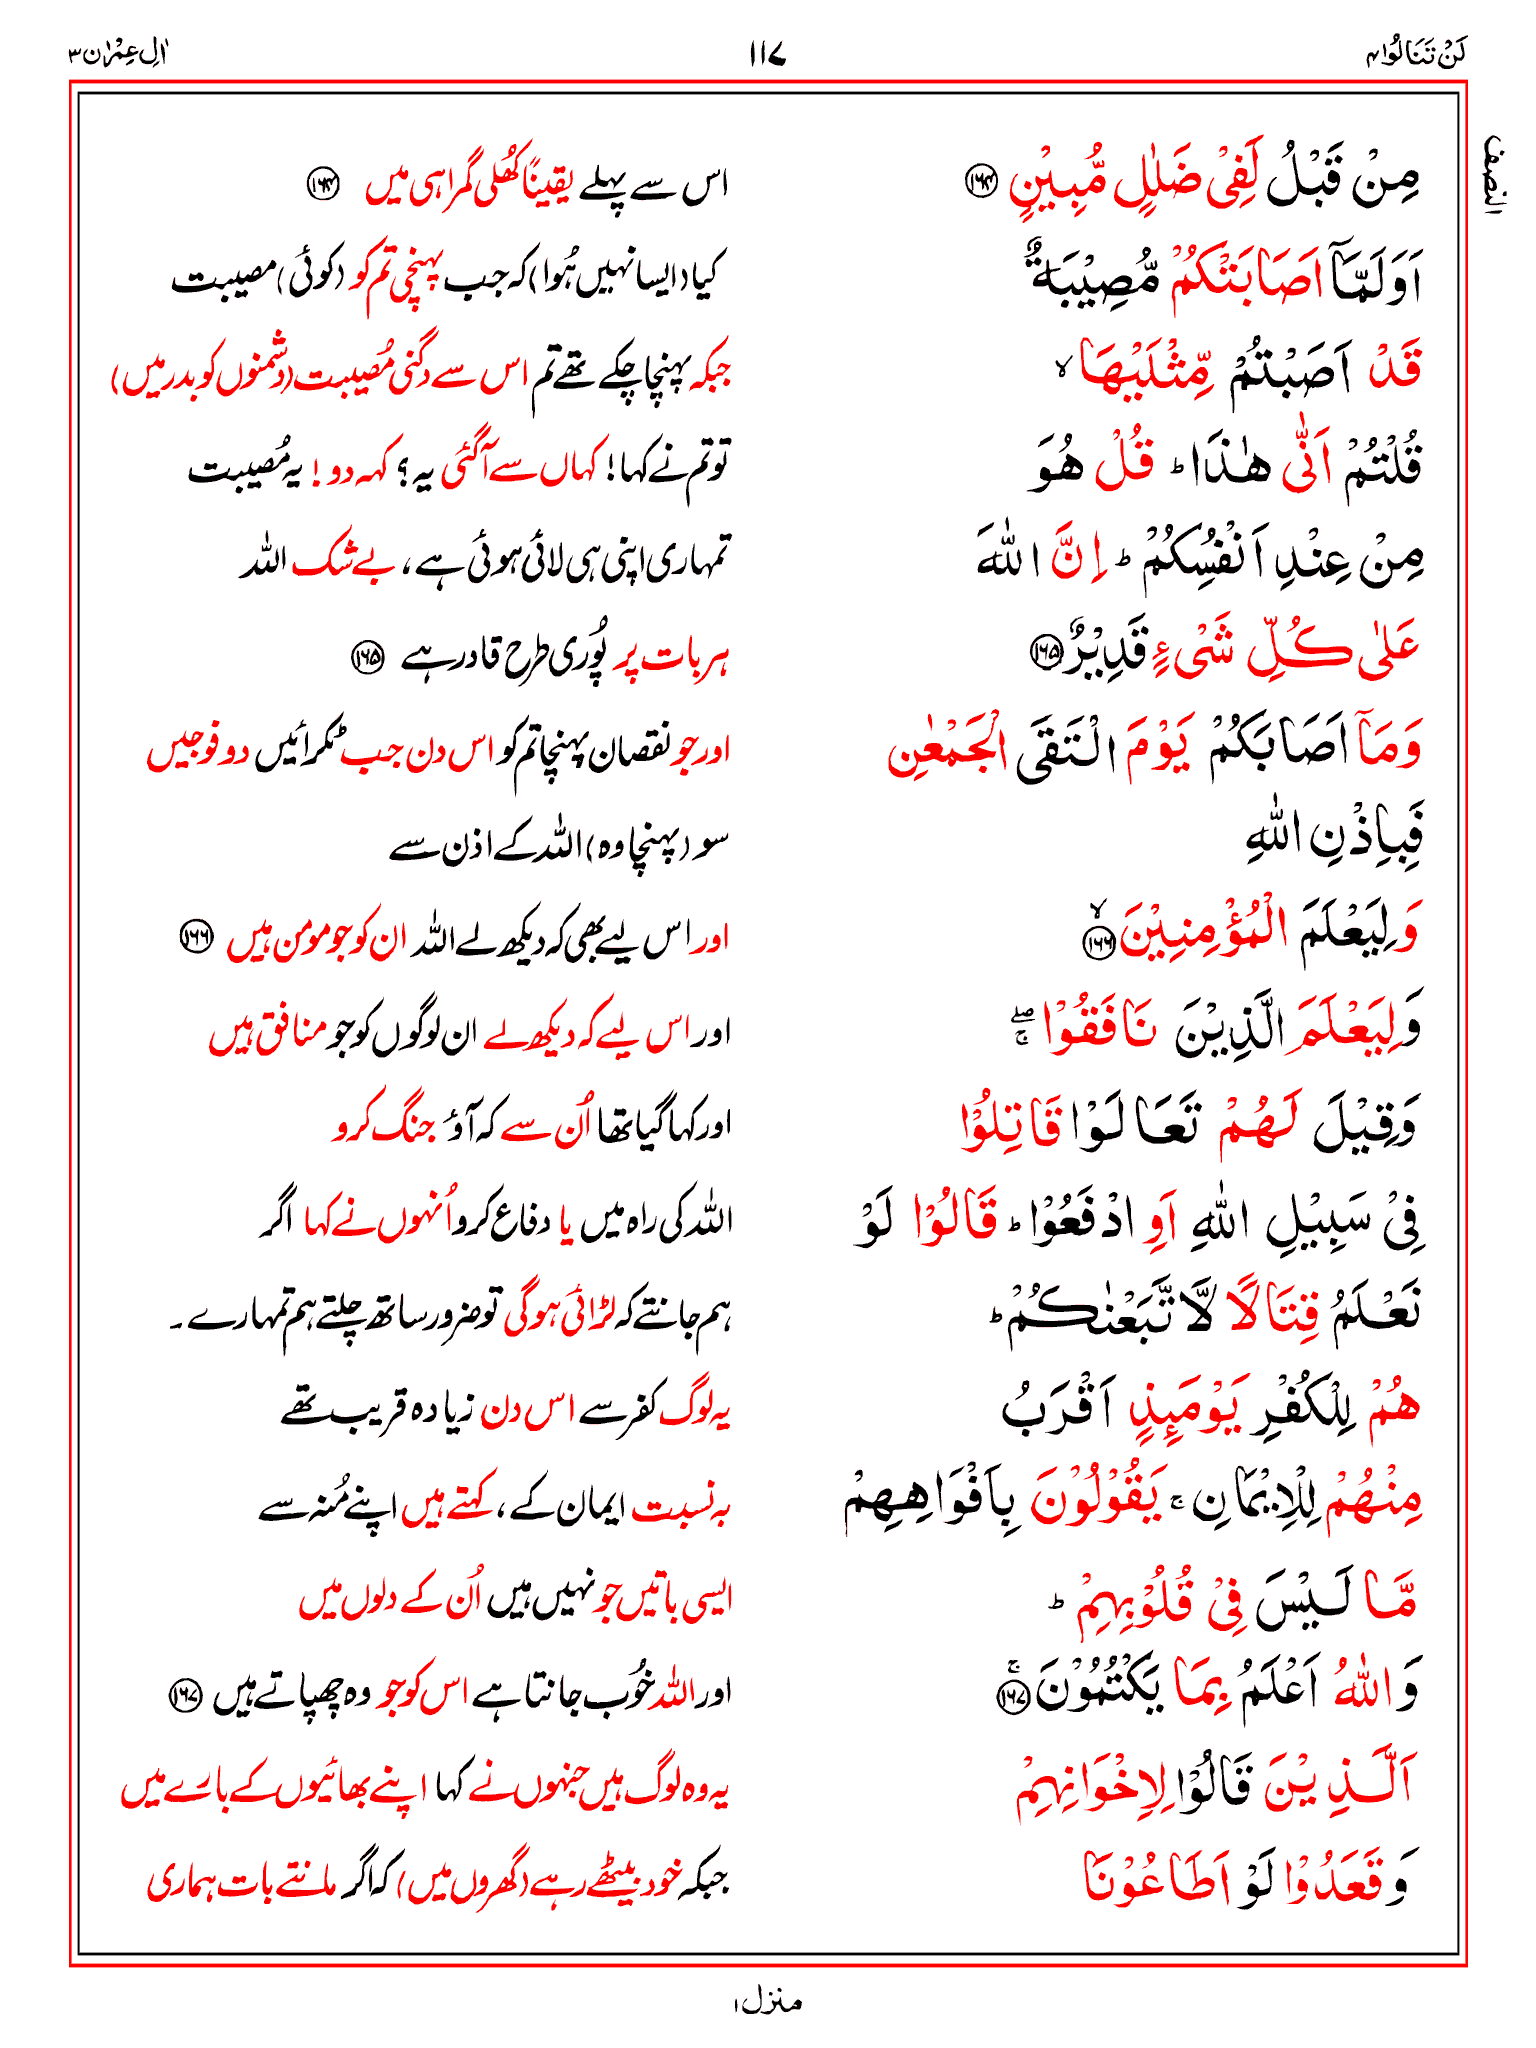 لَنْ تَنَالُوْا ۴
۱۱۷
اٰلِ عِمْرٰن ۳
النصف
مِنْ قَبْلُ لَفِیْ ضَلٰلٍ مُّبِیْنٍ ۝۱۶۴
اس سے پہلے یقیناً کھُلی گمراہی میں ۝۱۶۴
اَوَلَمَّاۤ اَصَابَتْكُمْ مُّصِیْبَةٌ
کیا (ایسا نہیں ہُوا) کہ جب پہنچی تم کو (کوئی) مصیبت
قَدْ اَصَبْتُمْ مِّثْلَیْهَا ۙ
جبکہ پہنچا چکے تھے تم اس سے دگنی مُصیبت (دشمنوں کو بدر میں)
قُلْتُمْ اَنّٰی هٰذَا ؕ قُلْ هُوَ
تو تم نے کہا! کہاں سے آگئی یہ؟ کہہ دو! یہ مُصیبت
مِنْ عِنْدِ اَنْفُسِكُمْ ؕ اِنَّ اللّٰهَ
تمہاری اپنی ہی لائی ہوئی ہے، بے شک اللہ
عَلٰی كُلِّ شَیْءٍ قَدِیْرٌ ۝۱۶۵
ہر بات پر پُوری طرح قادر ہے ۝۱۶۵
وَمَاۤ اَصَابَكُمْ یَوْمَ الْتَقَی الْجَمْعٰنِ
اور جو نقصان پہنچا تم کو اس دن جب ٹکرائیں دو فوجیں
فَبِاِذْنِ اللّٰهِ
سو (پہنچا وہ) اللہ کے اذن سے
وَلِیَعْلَمَ الْمُؤْمِنِیْنَ ۝۱۶۶ۙ
اور اس لیے بھی کہ دیکھ لے اللہ ان کو جو مومن ہیں ۝۱۶۶
وَلِیَعْلَمَ الَّذِیْنَ نَافَقُوْا ۖۚ
اور اس لیے کہ دیکھ لے ان لوگوں کو جو منافق ہیں
وَقِیْلَ لَهُمْ تَعَالَوْا قَاتِلُوْا
اور کہا گیا تھا اُن سے کہ آؤ جنگ کرو
فِیْ سَبِیْلِ اللّٰهِ اَوِ ادْفَعُوْا ؕ قَالُوْا لَوْ
اللہ کی راہ میں یا دفاع کرو اُنہوں نے کہا اگر
نَعْلَمُ قِتَالًا لَّا تَّبَعْنٰكُمْ ؕ
ہم جانتے کہ لڑائی ہوگی تو ضرور ساتھ چلتے ہم تمہارے۔
هُمْ لِلْكُفْرِ یَوْمَىِٕذٍ اَقْرَبُ
یہ لوگ کفر سے اس دن زیادہ قریب تھے
مِنْهُمْ لِلْاِیْمَانِ ۚ یَقُوْلُوْنَ بِاَفْوَاهِهِمْ
بہ نسبت ایمان کے، کہتے ہیں اپنے مُنہ سے
مَّا لَیْسَ فِیْ قُلُوْبِهِمْ ؕ
ایسی باتیں جو نہیں ہیں اُن کے دلوں میں
وَاللّٰهُ اَعْلَمُ بِمَا یَكْتُمُوْنَ ۝۱۶۷ۚ
اور اللہ خُوب جانتا ہے اس کو جو وہ چھپاتے ہیں ۝۱۶۷
اَلَّذِیْنَ قَالُوْا لِاِخْوَانِهِمْ
یہ وہ لوگ ہیں جنہوں نے کہا اپنے بھائیوں کے بارے میں
وَقَعَدُوْا لَوْ اَطَاعُوْنَا
جبکہ خود بیٹھے رہے (گھروں میں) کہ اگر مانتے بات ہماری
منزل ۱